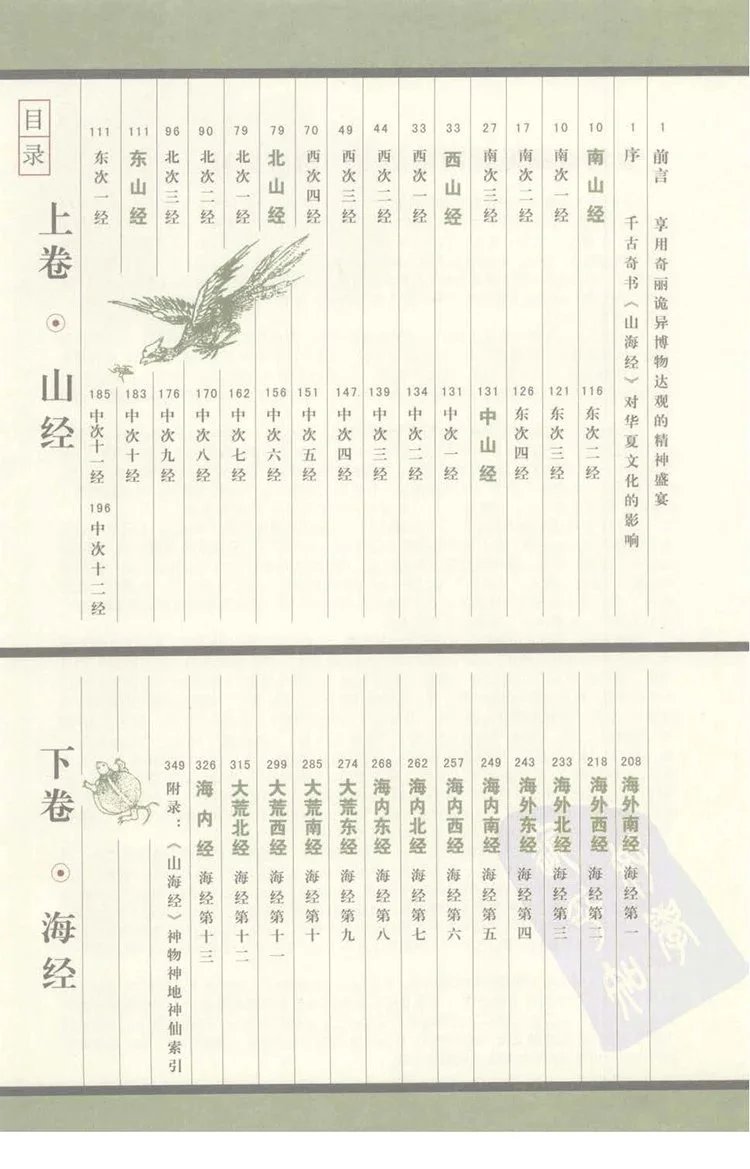 目录
上卷 · 山经
1 前言 享用奇丽诡异博物达观的精神盛宴
1 序 千古奇书《山海经》对华夏文化的影响
10 南山经
10 南次一经
17 南次二经
27 南次三经
33 西山经
33 西次一经
44 西次二经
49 西次三经
70 西次四经
79 北山经
79 北次一经
90 北次二经
96 北次三经
111 东山经
111 东次一经
116 东次二经
121 东次三经
126 东次四经
131 中山经
131 中次一经
134 中次二经
139 中次三经
147 中次四经
151 中次五经
156 中次六经
162 中次七经
170 中次八经
176 中次九经
183 中次十经
185 中次十一经
196 中次十二经
下卷 · 海经
208 海外南经 海经第一
218 海外西经 海经第二
233 海外北经 海经第三
243 海外东经 海经第四
249 海内南经 海经第五
257 海内西经 海经第六
262 海内北经 海经第七
268 海内东经 海经第八
274 大荒东经 海经第九
285 大荒南经 海经第十
299 大荒西经 海经第十一
315 大荒北经 海经第十二
326 海内经 海经第十三
349 附录:《山海经》神物神地神仙索引